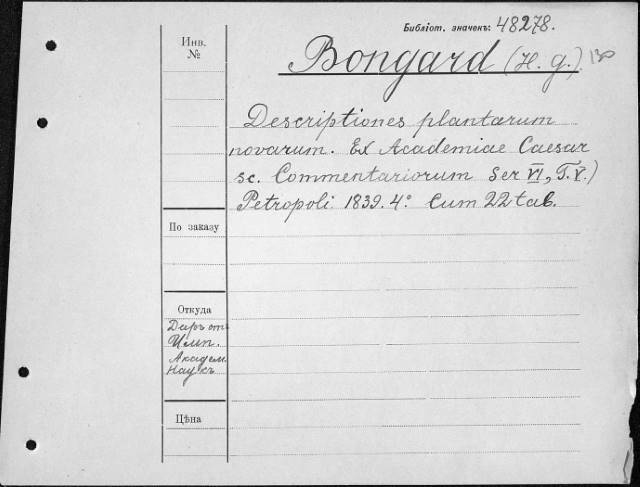 Библіот. значекъ: 48278.
Инв.
№
Bongard (H. g.) 130
Descriptiones plantarum
novarum. Ex Academiae Caesar
sc. Commentariorum Ser VI, T. V.)
Petropoli 1839. 4º Cum 22 tab.
По заказу
Откуда
Даръ отъ
Имп.
Академ.
Наукъ
Цѣна